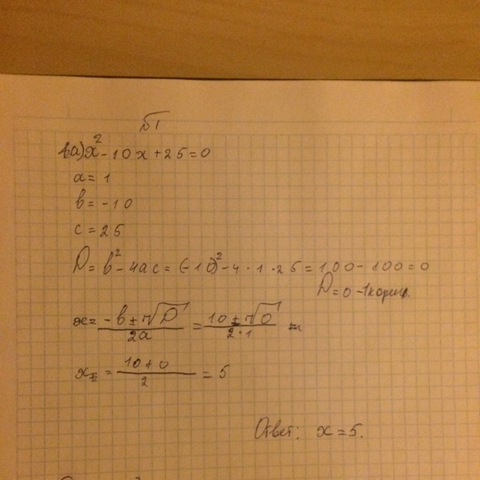 №1
1.a) x² - 10x + 25 = 0
a = 1
b = -10
c = 25
D = b² - 4ac = (-10)² - 4 · 1 · 25 = 100 - 100 = 0
D = 0 - 1 корень.
x = (-b ± √D)/2a = (10 ± √0)/2·1
x = (10 + 0)/2 = 5
Ответ: x = 5.